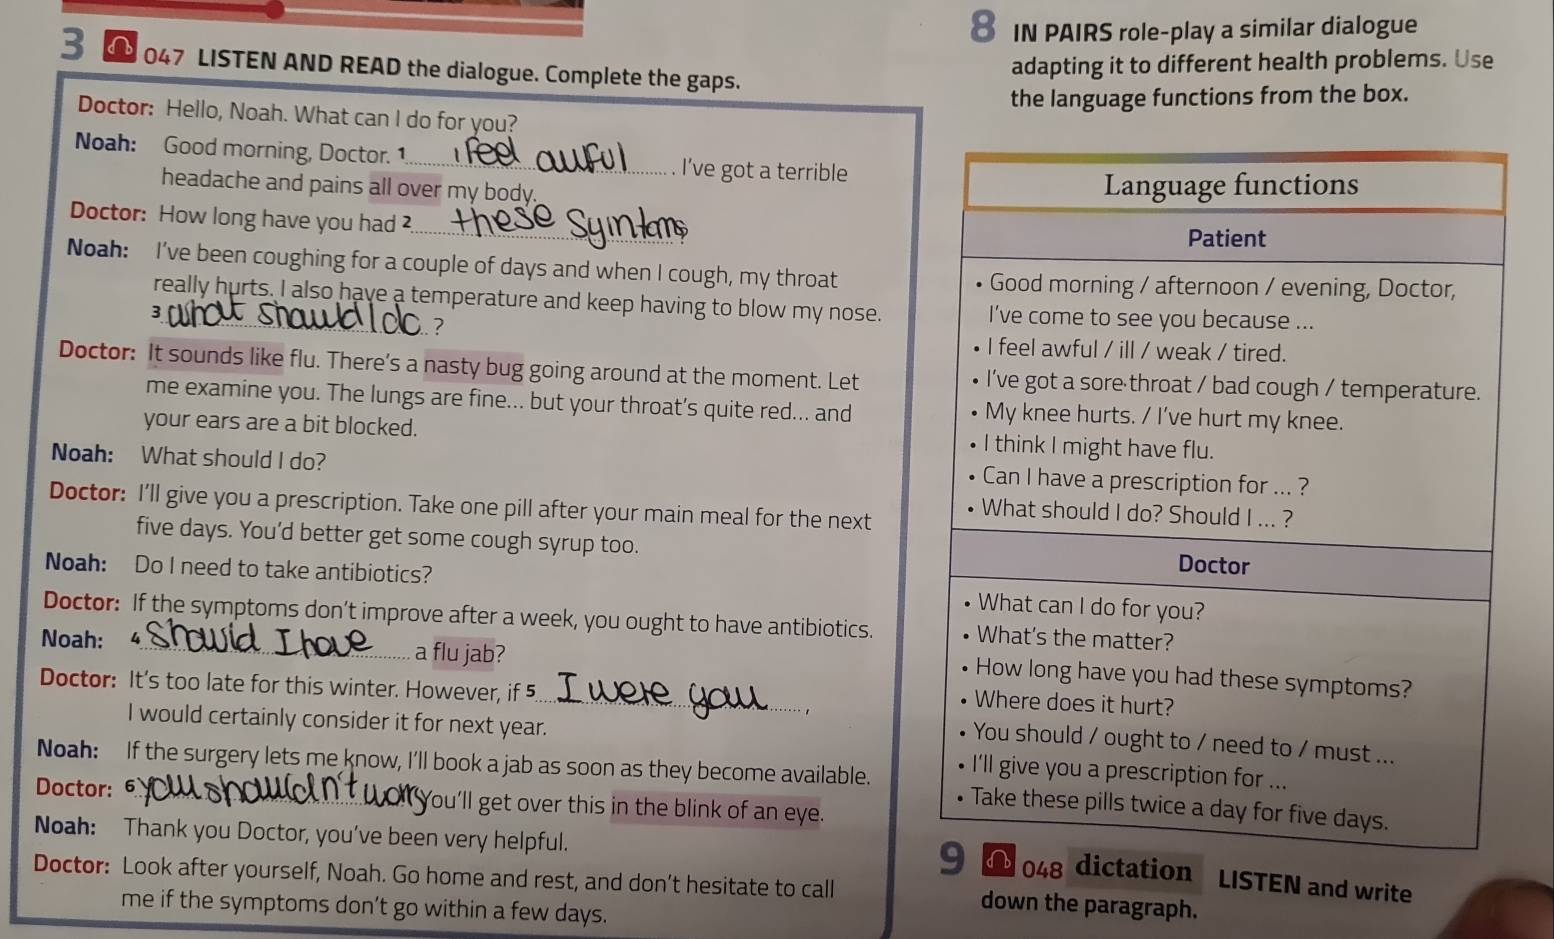 3 047 LISTEN AND READ the dialogue. Complete the gaps.
Doctor: Hello, Noah. What can I do for you?
Noah: Good morning, Doctor. 1 I feel awful. I've got a terrible
headache and pains all over my body.
Doctor: How long have you had 2 these Symtoms?
Noah: I've been coughing for a couple of days and when I cough, my throat
really hurts. I also have a temperature and keep having to blow my nose.
3 what should I do ?
Doctor: It sounds like flu. There's a nasty bug going around at the moment. Let
me examine you. The lungs are fine... but your throat's quite red... and
your ears are a bit blocked.
Noah: What should I do?
Doctor: I'll give you a prescription. Take one pill after your main meal for the next
five days. You'd better get some cough syrup too.
Noah: Do I need to take antibiotics?
Doctor: If the symptoms don't improve after a week, you ought to have antibiotics.
Noah: 4 Should I have a flu jab?
Doctor: It's too late for this winter. However, if 5 I were you,
I would certainly consider it for next year.
Noah: If the surgery lets me know, I'll book a jab as soon as they become available.
Doctor: 6 you shouldn't worry You'll get over this in the blink of an eye.
Noah: Thank you Doctor, you've been very helpful.
Doctor: Look after yourself, Noah. Go home and rest, and don't hesitate to call
me if the symptoms don't go within a few days.
8 IN PAIRS role-play a similar dialogue
adapting it to different health problems. Use
the language functions from the box.
Language functions
Patient
• Good morning / afternoon / evening, Doctor,
I've come to see you because ...
• I feel awful / ill / weak / tired.
• I've got a sore throat / bad cough / temperature.
• My knee hurts. / I've hurt my knee.
• I think I might have flu.
• Can I have a prescription for ... ?
• What should I do? Should I ... ?
Doctor
• What can I do for you?
• What's the matter?
• How long have you had these symptoms?
• Where does it hurt?
• You should / ought to / need to / must ...
• I'll give you a prescription for ...
• Take these pills twice a day for five days.
9 048 dictation LISTEN and write
down the paragraph.